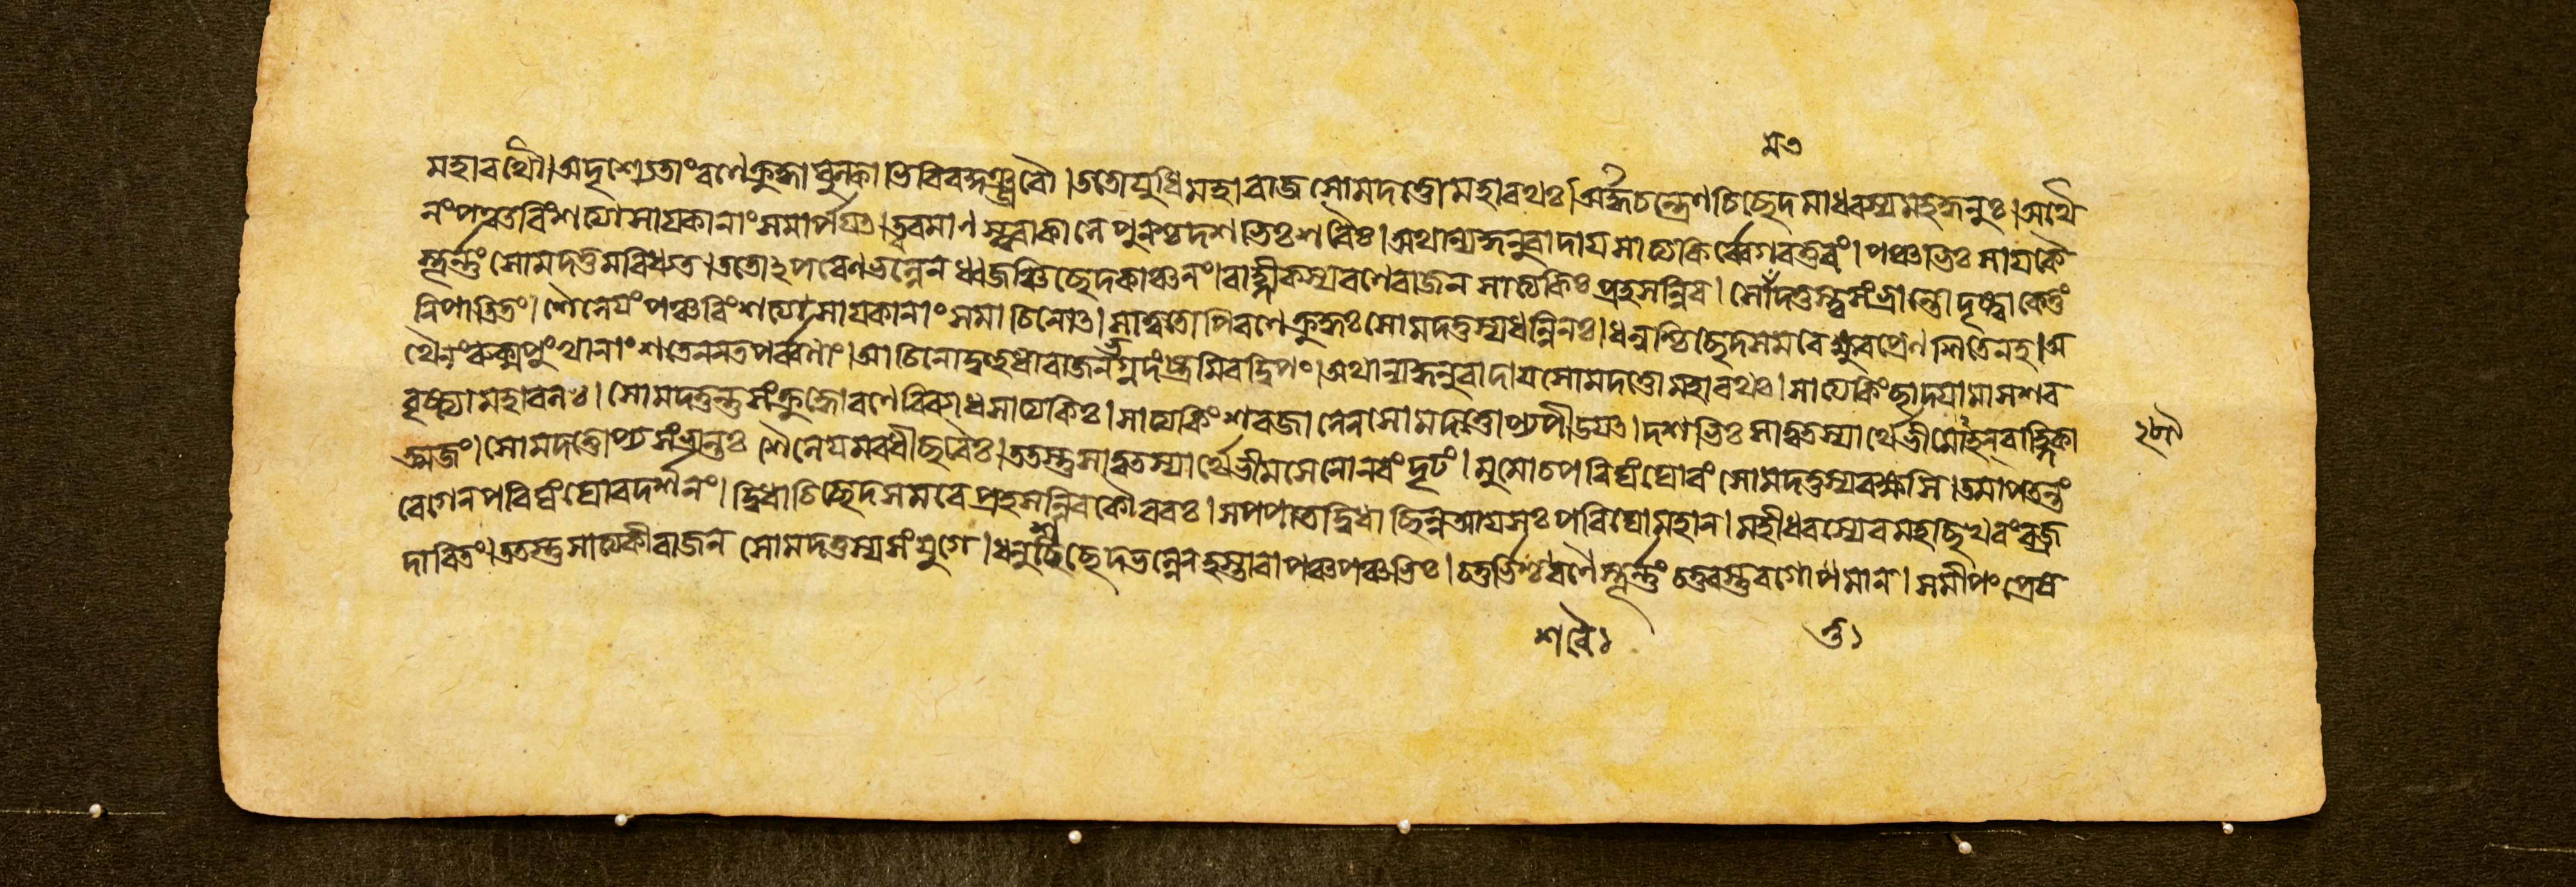 মত
মহাৰথৌ।অদৃশ্যেতাংৰণেক্রুদ্ধাৱুল্কাভিৰিৱকুঞ্জৰৌ।ততোযুধিমহাৰাজসোমদত্তোমহাৰথঃ।অর্দ্ধচন্দ্রেণচিচ্ছেদমাধৱস্যমহদ্ধনুঃ।অথৈ
নংপঞ্চৱিংশত্যাসাযকানাংসমার্পযত।ত্বৰমাণস্ত্বৰাকালেপুনশ্চদশভিঃশৰৈঃ।অথান্যদ্ধনুৰাদাযসাত্যকির্ৱ্বেগৱত্তৰং।পঞ্চভিঃসাযকৈ
স্তূর্ন্নংসোমদত্তমৱিধ্যত।ততোঽপৰেণভল্লেনধ্ৱজঞ্চিচ্ছেদকাঞ্চনং।ৱাহ্লীকস্যৰণেৰাজনসাত্যকিঃপ্রহসন্নিৱ।সোমদত্তস্ত্বসংভ্রান্তোদৃষ্ট্বাকেতুং
নিপাতিতং।শৈনেযংপঞ্চৱিংশত্যাসাযকানাংসমাচিনোত।সাত্ৱতোপিৰণেক্রুদ্ধঃসোমদত্তস্যধন্ৱিনঃ।ধনুশ্চিচ্ছেদসমৰেক্ষুৰপ্রেণশিতেনহ।অ
থৈনংৰুক্মপুংখানাংশতেননতপর্ৱ্বণাং।আচিনোদ্বহুধাৰাজনভগ্নদংষ্ট্রমিৱদ্ৱিপং।অথান্যদ্ধনুৰাদাযসোমদত্তোমহাৰথঃ।সাত্যকিংছাদযামাসশৰ
ৱৃষ্ট্যামহাৱলঃ।সোমদত্তন্তুসংক্রুদ্ধোৰণেৱিৱ্যাধসাত্যকিঃ।সাত্যকিংশৰজালেনসোমদত্তোপ্যপীডযত।দশভিঃসাত্ৱতস্যার্থেভীমোহনৱাহ্লিকা
ত্মজং।সোমদত্তোপ্যসংভ্রান্তঃশৈনেযমৱধীছৰৈঃ।ততস্তুসাত্ৱতস্যার্থেভীমসেনোনৱংদৃঢং।মুমোচপৰিঘংঘোৰংসোমদত্তস্যৱক্ষসি।তমাপতন্তং
ৱেগেনপৰিঘংঘোৰদর্শনং।দ্ৱিধাচিচ্ছেদসমৰেপ্রহসন্নিৱকৌৰৱঃ।সপপাতদ্ৱিধাছিন্নআযসঃপৰিঘোমহান।মহীধৰস্যেৱমহছিখৰংৱজ্র
দাৰিতং।ততস্তুসাত্যকীৰাজনসোমদত্তস্যসংযুগে।ধনুশ্চিচ্ছেদভল্লেনহস্তাৱাপঞ্চপঞ্চভিঃ।চতুর্ভিশ্চৰণৈস্তূর্ন্নংচতুৰস্তুৰগোত্তমান।সমীপংপ্রেষ
শৰৈঃ